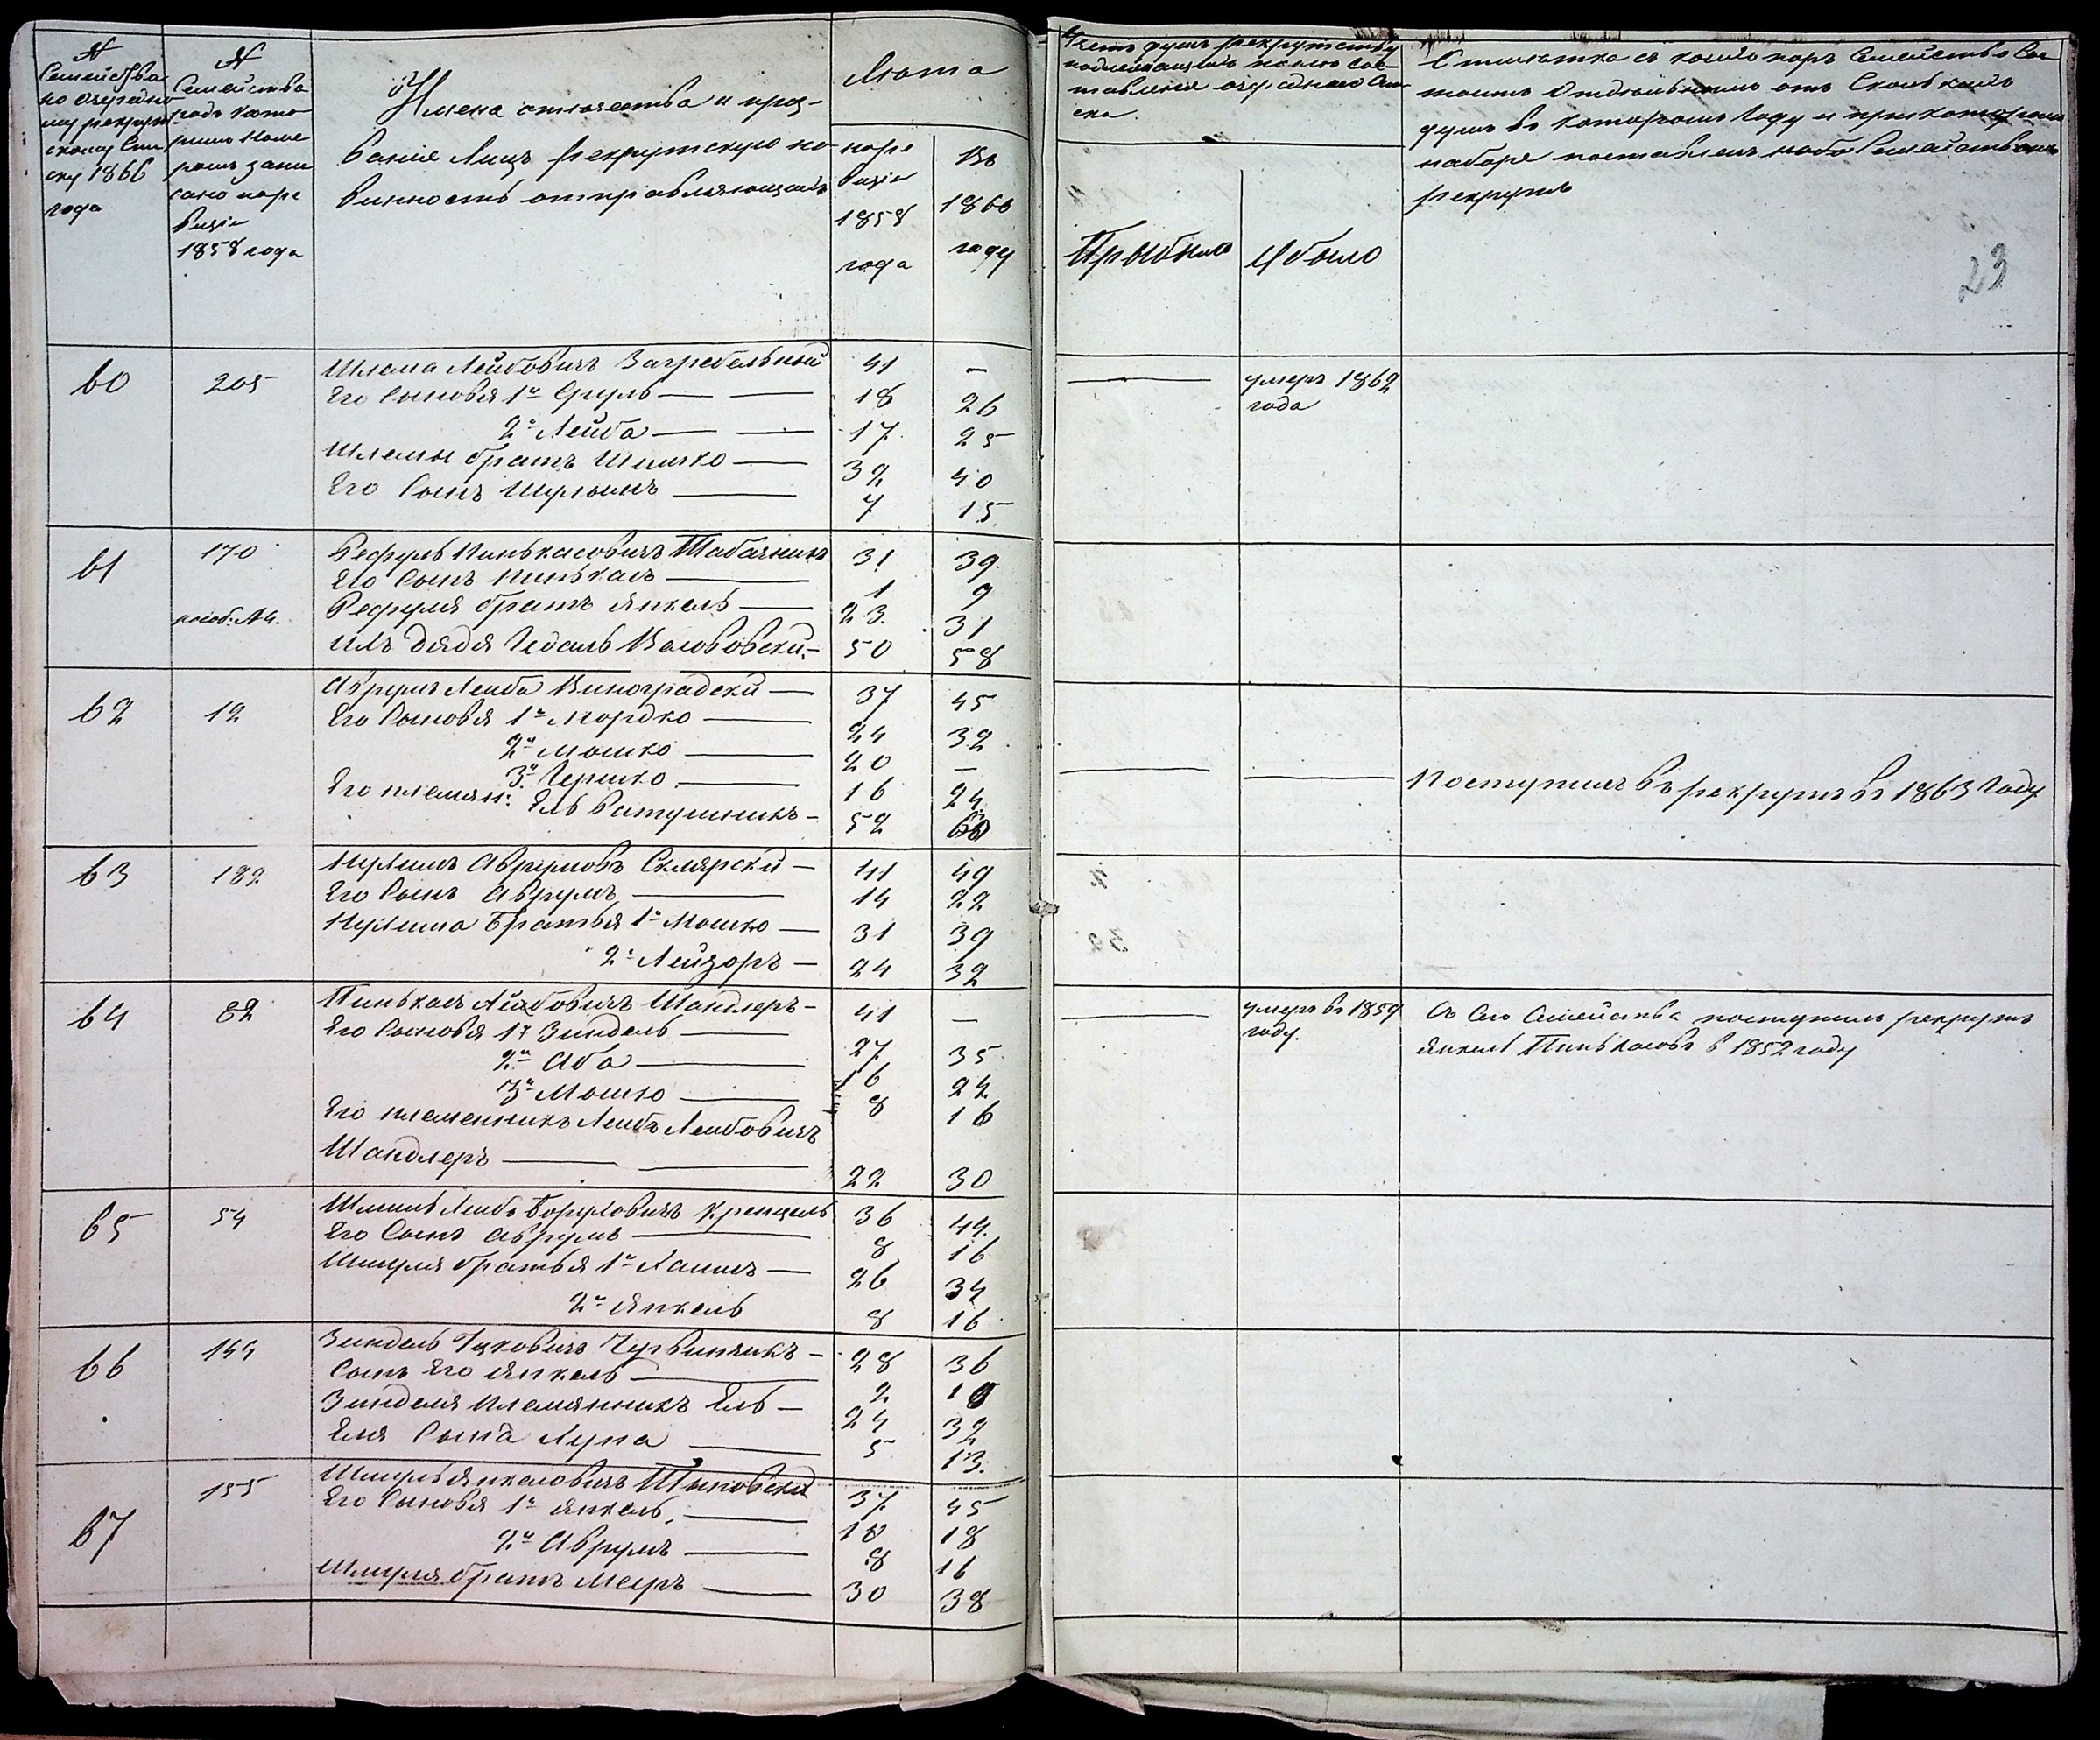 №
Семейства
по очеред­но
му рекрут
скому Спи
ску 1866
года
№
Семейства
подъ кото
рымъ Номе
ромъ запи
сано по ре
визіи
1858 года
Имена отчества и проз-
ваніе Лицъ рекрутскую по-
винность отправляющихъ
Лѣта
по ре
визіи
1858
года
Въ
1866
году
рекрутству
Прибыло
Убыло
Отмѣтка съ коихъ поръ Семейство Сос-
тоитъ Отдѣльнымъ отъ Сколькихъ
душъ въ Которомъ Году и при которомъ
наборѣ поставленъ Семействомъ
рекрутъ
23
60 205 Шлема Лейбовичъ Загребельный 41 — — умеръ 1862
года
Его Сыновья 1й Сруль — — 18 26
2й Лейба — — 17 25
Шлемы братъ Шимко — 32 40
Его Сынъ — 7 15
61 170 Рефуль Пинькасовичъ Табачникъ 31 39
Его Сынъ Пинькасъ — 1 9
Рефуля братъ Янкель — 23 31
Ихъ дядя Гедаль — 50 58
62 12 Аврумъ Лейба Виноградски — 37 45
Его Сыновья 1й Мордко — 24 32
2й Мошко — 20 — — — Поступилъ въ рекруты въ 1863 Году
3й Гершко — 16 24
Его племян: Ель Ратушникъ — 52 60
63 182 Аврумовъ Склярски — 41 49
Его Сынъ Аврумъ — 14 22
Братья 1й Мошко — 31 39
2й Лейзоръ — 24 32
64 82 Пинькасъ Лейбовичъ Шандлеръ — 41 — — умеръ въ 1859
году. Съ Сего Семейства поступилъ рекрутъ
Янкель Пинькасовъ в 1852 году
Его Сыновья 1й Зиндель — 27 35
2й Аба — 16 24
3й Мошко — 8 16
Его племенникъ Лейбъ Лейбовичъ
Шандлеръ — — 22 30
65 54 Шмиль Лейбъ Боруховичъ Кренцель 36 44
Его Сынъ Аврумъ — 8 16
Шмуля братья 1й Хаимъ — 26 34
2й Янкель 8 16
66 144 Зиндель Ицковичъ Червинчикъ — 28 36
Сынъ Его Янкель — 2 10
Зинделя племянникъ Ель — 24 32
Еля Сынъ Лупа — 5 13
67 155 Шмуль Янкеловичъ 37 45
Его Сыновья 1й Янкель, — 10 18
2й Аврумъ — 8 16
Шмуля братъ Мееръ — 30 38